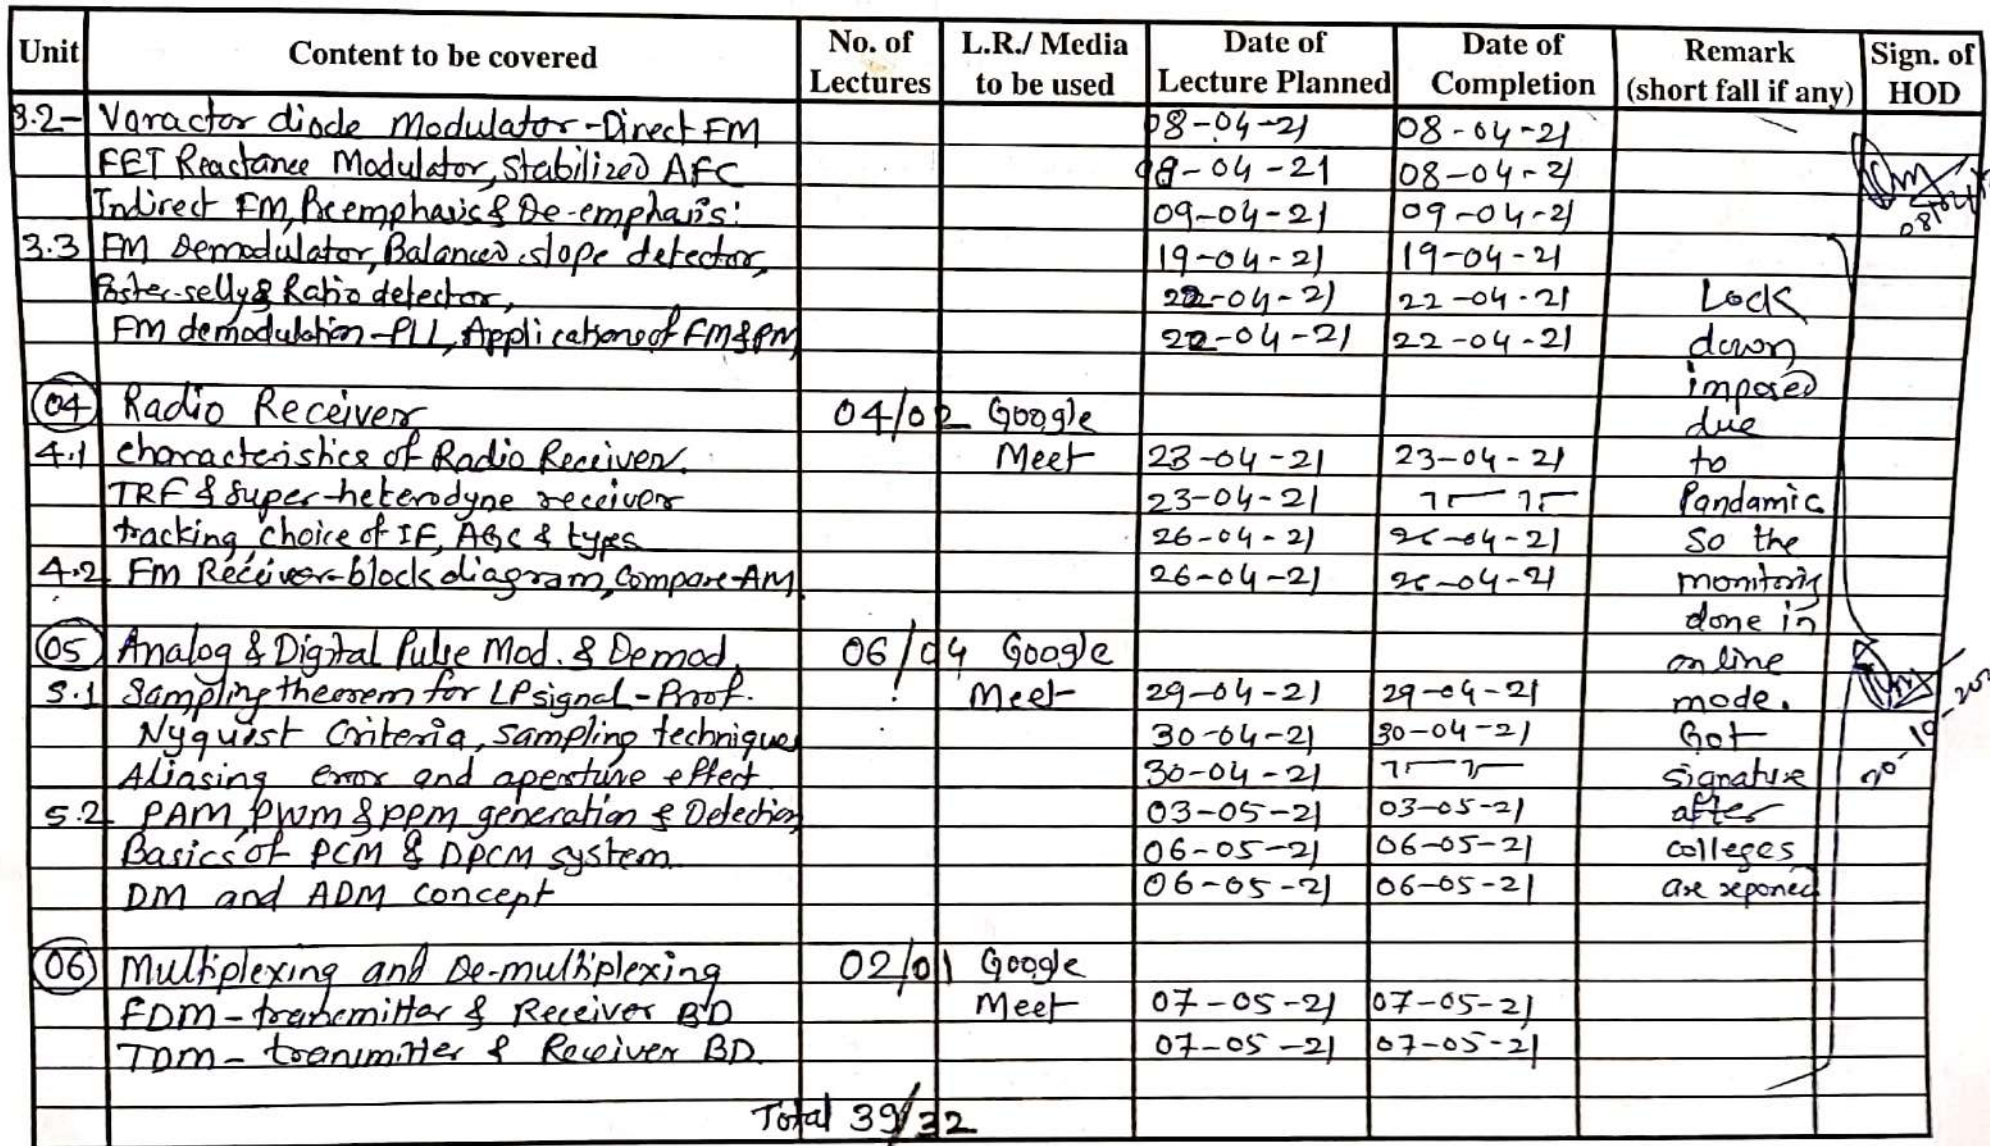 Unit Content to be covered No. of Lectures L.R./ Media to be used Date of Lecture Planned Date of Completion Remark (short fall if any) Sign. of HOD
3.2- Varactor diode Modulator-Direct FM 08-04-21 08-04-21
FET Reactance Modulator, Stabilized AFC 08-04-21 08-04-21
Indirect FM, Preemphasis & De-emphasis: 09-04-21 09-04-21
3.3 FM Demodulator, Balanced slope detector, 19-04-21 19-04-21
Foster-selly & Ratio detector, 22-04-21 22-04-21 Lock
FM demodulation-PLL, Applications of FM & PM 22-04-21 22-04-21 down
imposed
04 Radio Receiver 04/02 Google due
4.1 characteristics of Radio Receiver. Meet 23-04-21 23-04-21 to
TRF & Super-heterodyne receiver 23-04-21 Pandamic
tracking, choice of IF, AGC & types 26-04-21 26-04-21 So the
4.2 FM Receiver-block diagram, Compare-AM 26-04-21 26-04-21 monitoring
done in
05 Analog & Digital Pulse Mod. & Demod. 06/04 Google on line
5.1 Sampling theorem for LP signal-Proof. Meet 29-04-21 29-04-21 mode.
Nyquist Criteria, sampling techniques 30-04-21 30-04-21 Got
Aliasing error and aperture effect 30-04-21 signature
5.2 PAM, PWM & PPM generation & Detection 03-05-21 03-05-21 after
Basics of PCM & DPCM system 06-05-21 06-05-21 colleges
DM and ADM concept 06-05-21 06-05-21 are reponed
06 Multiplexing and De-multiplexing 02/01 Google
FDM-transmitter & Receiver BD Meet 07-05-21 07-05-21
TDM- tranimitter & Receiver BD. 07-05-21 07-05-21
Total 39/32